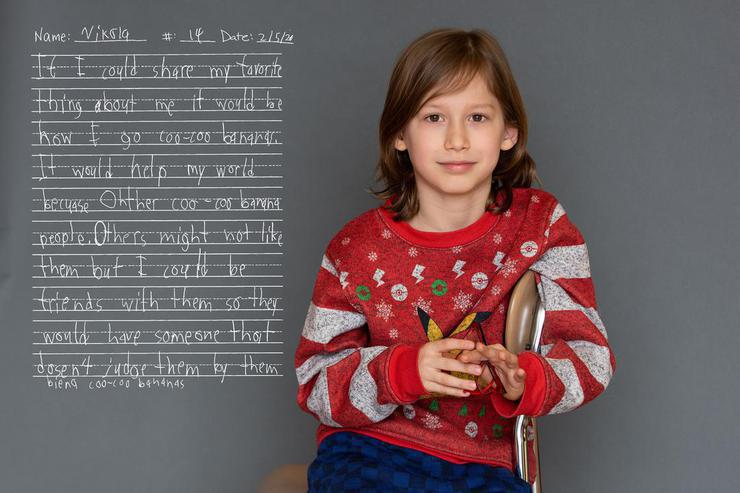 Name: Nikola #: 14 Date: 2/5/20
If I could share my favorite
thing about me it would be
how I go coo-coo bananas.
It would help my world
becuase Ohther coo-coo banana
people. Others might not like
them but I could be
friends with them so they
would have someone that
dosen4 judge them by them
bieng coo-coo bananas